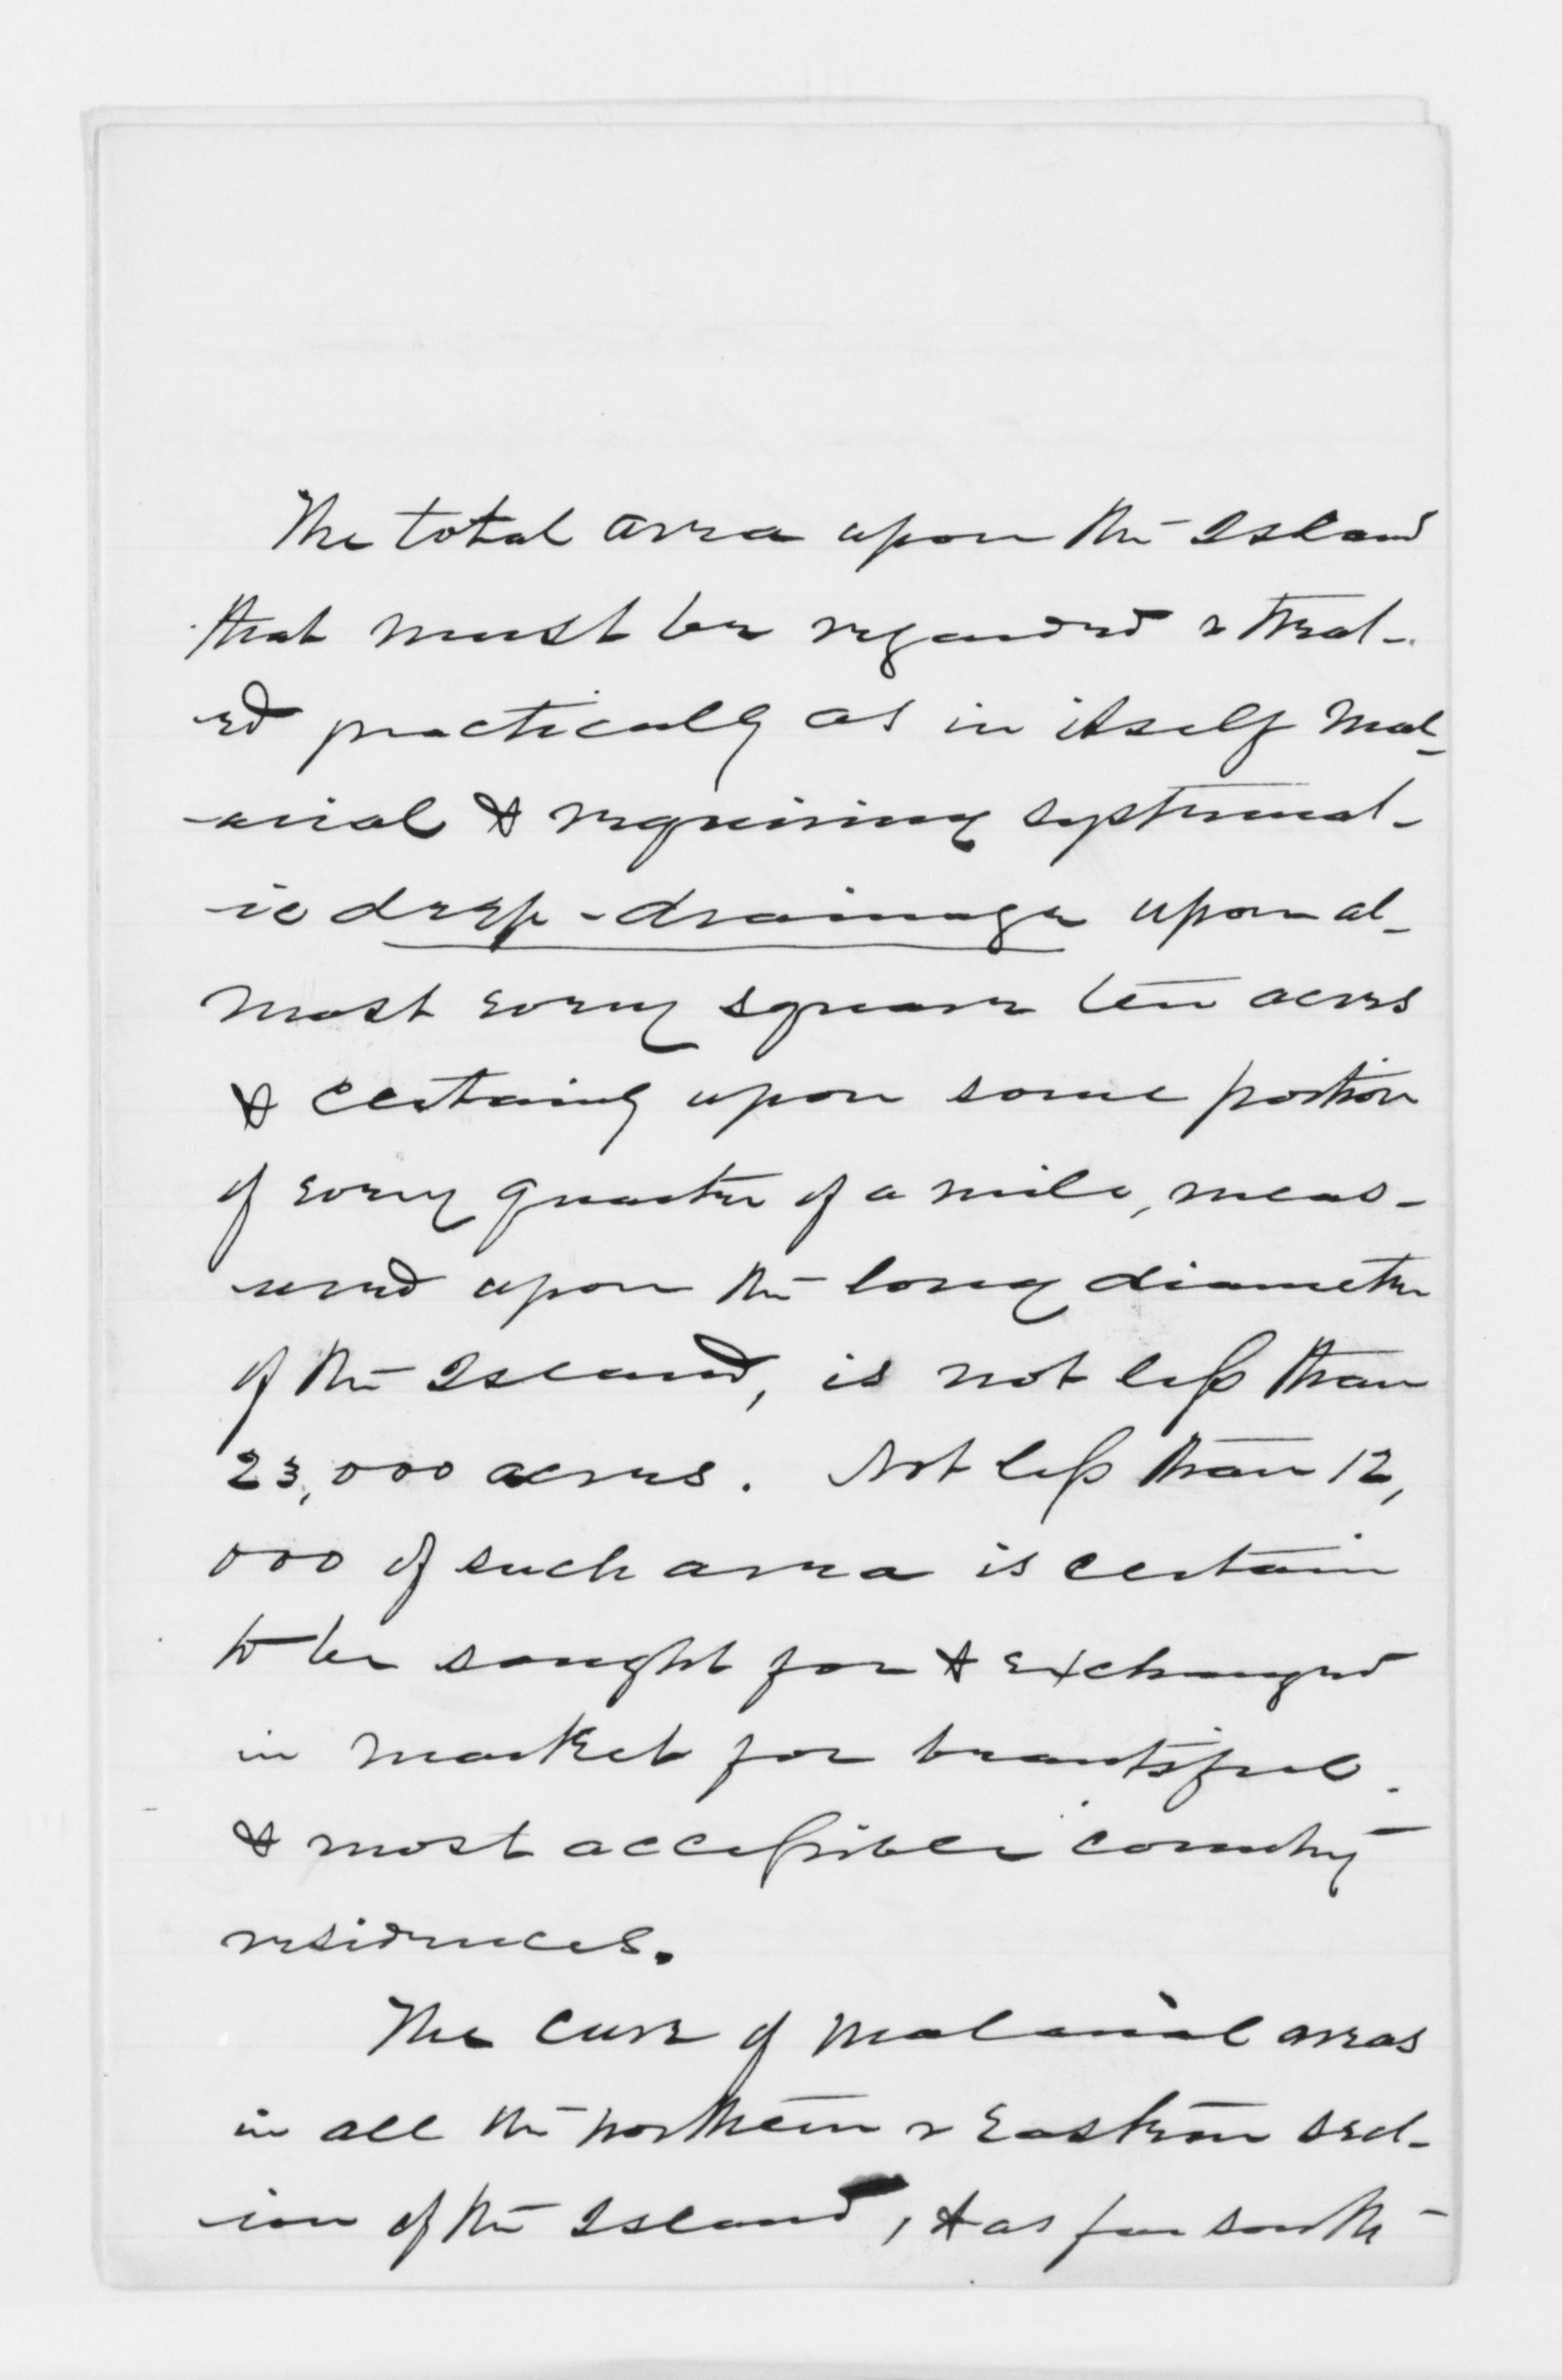 The total area upon the Island
that must be regarded & treat-
ed practically as in itself Mal-
-arial & requiring systemat-
-ic deep-drainage upon al-
most every square ten acres
& certainly upon some portion
of every quarter of a mile, meas-
ured upon the long diameter
of the Island, is not less than
23,000 acres. Not less than 12,
000 of such area is certain
to be sought for & exchanged
in market for beautiful
& most accessible country
residences.
The cure of malarial areas
in all the northern & Eastern sect-
ion of the Island, & as far south